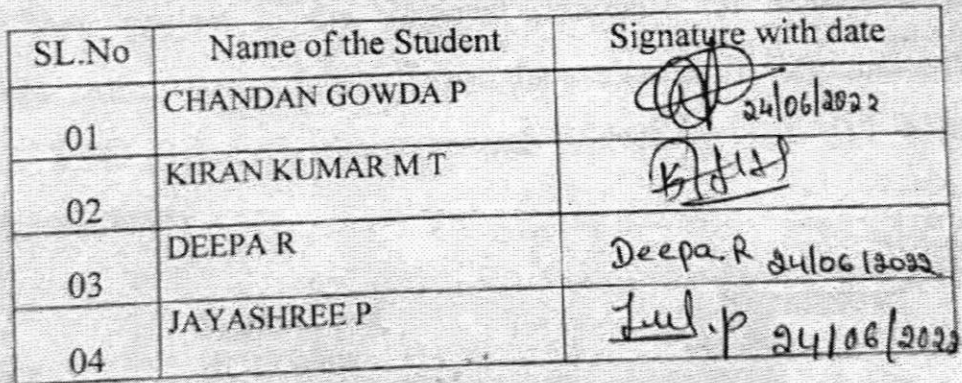 SL.No Name of the Student Signature with date
CHANDAN GOWDA P
01 24/06/2022
KIRAN KUMAR M T
02
DEEPA R
03 Deepa.R 24/06/2022
JAYASHREE P
04 .P 24/06/2022